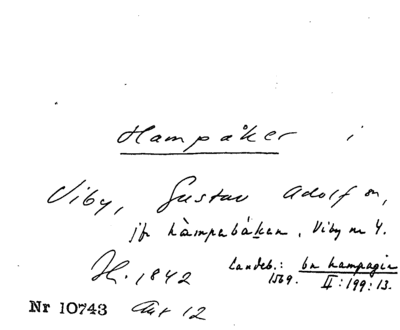 Hampåker i
Viby, Gustav Adolf sn,
jfr hàmpabáken, Viby nr 4.
H. 1842 Landeb.: bn hampagin
1569. II:199:13.
Nr 10743 Akt 12